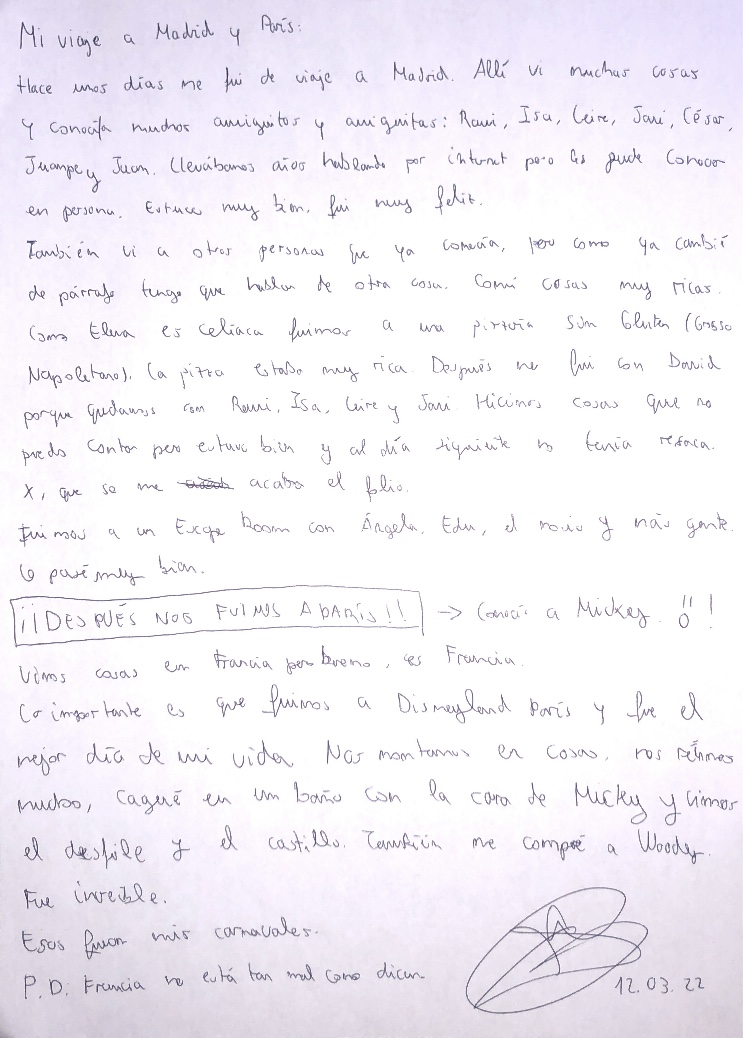 Mi viaje a Madrid y París:
Hace unos días me fui de viaje a Madrid. Allí vi muchas cosas
y conocí a muchos amiguitos y amiguitas: Remi, Isa, Leire, Javi, César,
Juampe y Juan. Llevábamos años hablando por internet pero les pude conocer
en persona. Estuvo muy bien, fui muy feliz.
También vi a otras personas que ya conocía, pero como ya cambié
de párrafo tengo que hablar de otra cosa. Comí cosas muy ricas.
Como Elena es celiaca fuimos a una pizzería sin Gluten (Grosso
Napoletano). La pizza estaba muy rica. Después me fui con David
porque quedamos con Remi, Isa, Leire y Javi. Hicimos cosas que no
puedo contar pero estuvo bien y al día siguiente no tenía resaca.
X, que se me acaba el folio.
Fuimos a un Escape Room con Ángela, Edu, el novio y más gente.
Lo pasé muy bien.
¡¡DESPUÉS NOS FUIMOS A PARÍS!! → Conocí a Mickey !!
Vimos cosas en Francia pero bueno, es Francia.
Lo importante es que fuimos a Disneyland París y fue el
mejor día de mi vida. Nos montamos en cosas, nos reímos
mucho, cagué en un baño con la cara de Micky y vimos
el desfile y el castillo. También me compré a Woody.
Fue increíble.
Esos fueron mis carnavales.
P.D: Francia no está tan mal como dicen.
12.03.22